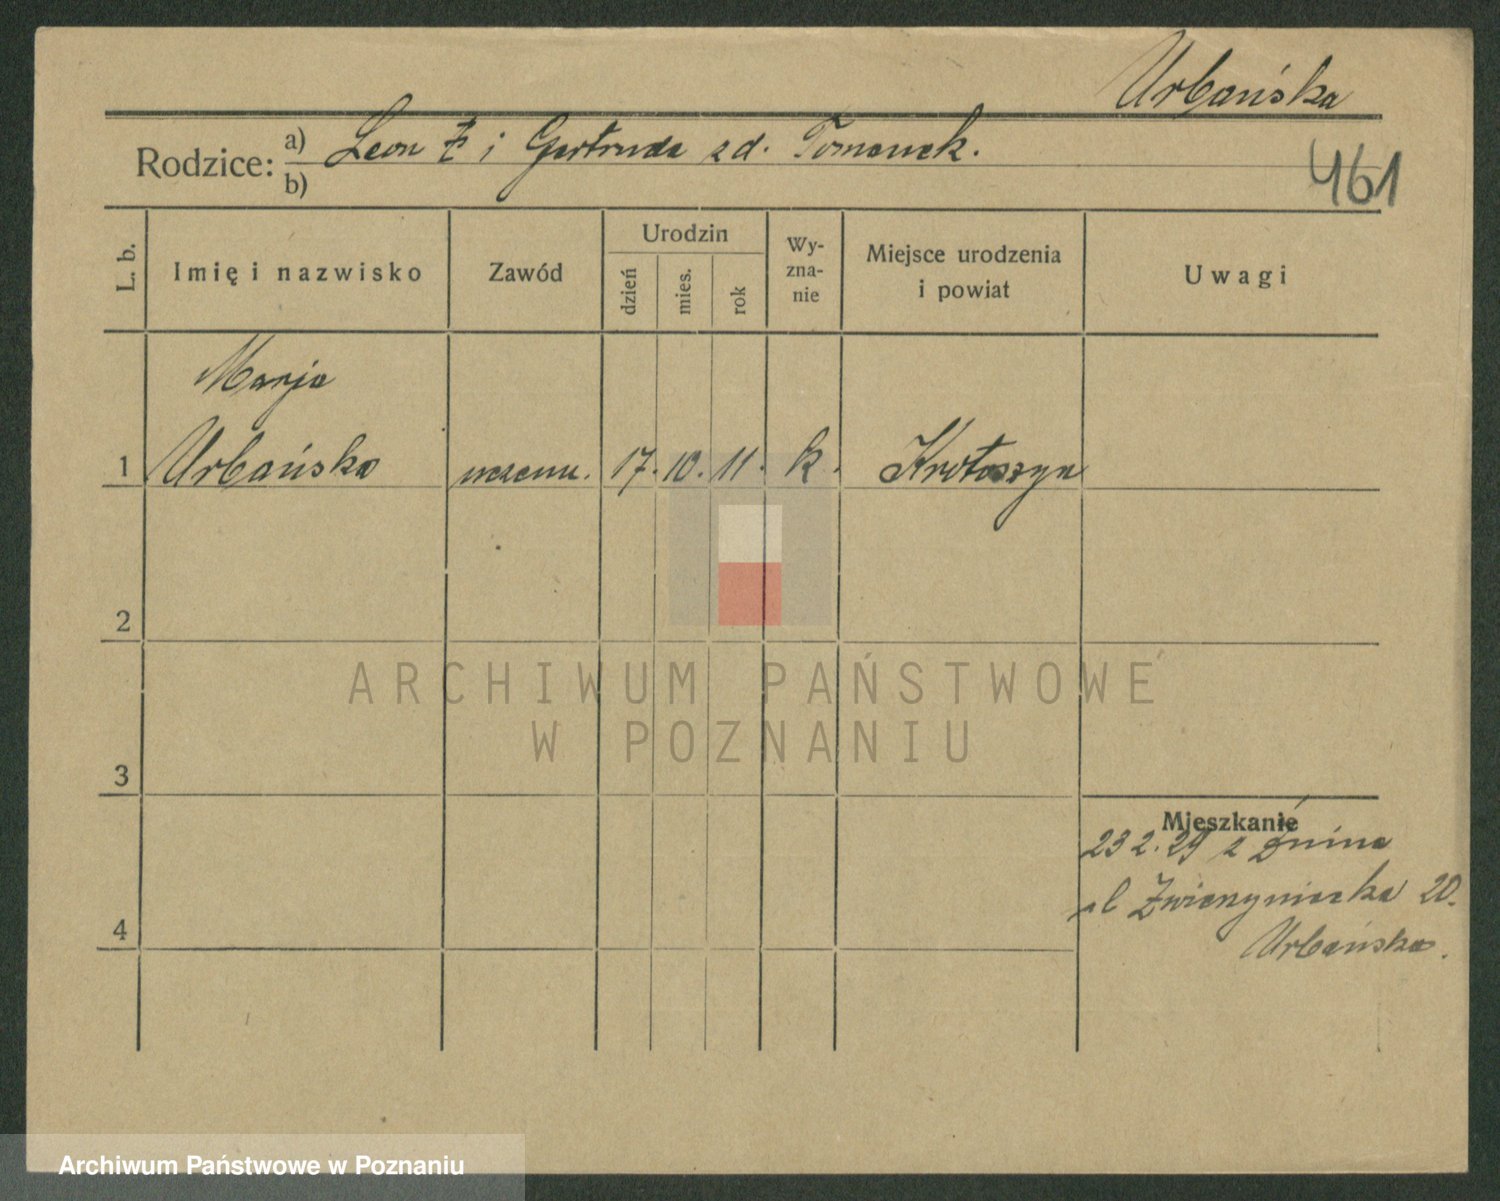 Urbańska
Rodzice: a) Leon i Gertruda zd. Tomanek.
b)
461
L. b.
Imię i nazwisko
Zawód
Urodzin
dzień
mies.
rok
Wy-
zna-
nie
Miejsce urodzenia
i powiat
Uwagi
Marja
1 Urbańska uczenn. 17. 10. 11. k. Krotoszyn
2
ARCHIWUM PAŃSTWOWE
W POZNANIU
3
Mieszkanie
23 2. 29 z Żnina
ul Zwierzyniecka 20.
4
Urbańska.
Archiwum Państwowe w Poznaniu